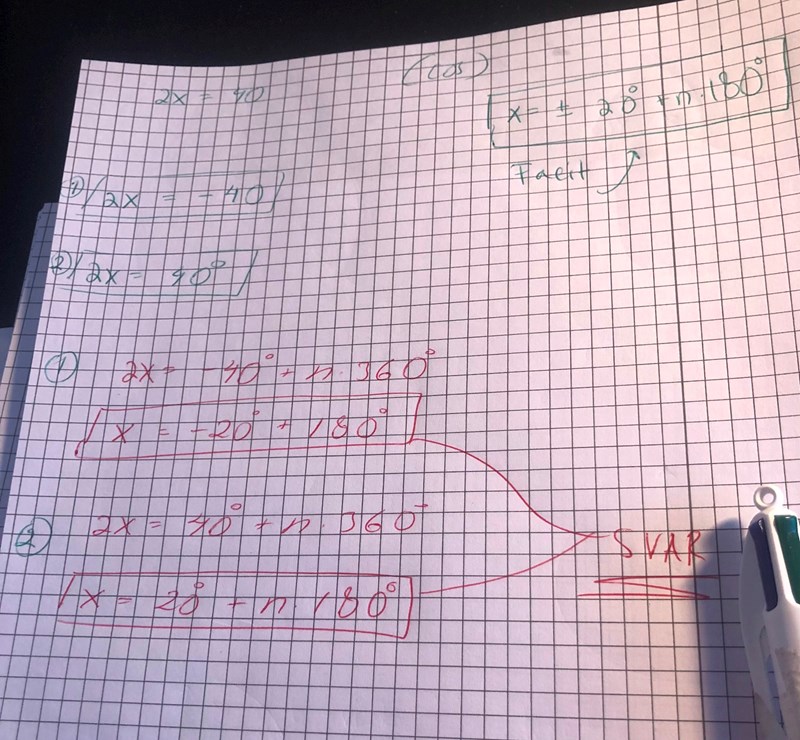 2x = 40
(cos)
x = ± 20° + n·180°
Facit
① 2x = -40
② 2x = 40°
① 2x = -40° + n·360°
x = -20° + 180°
② 2x = 40° + n·360°
x = 20° + n·180°
SVAR